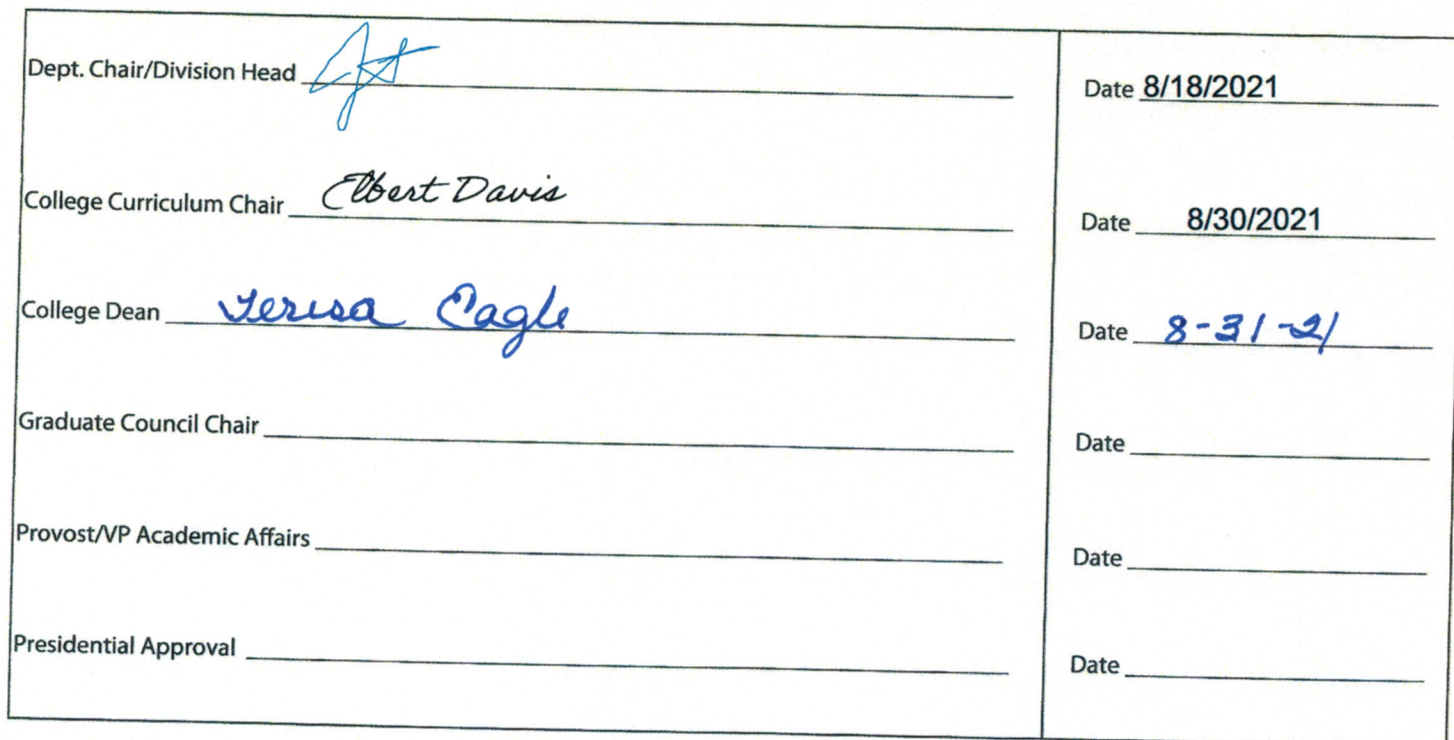 Dept. Chair/Division Head
Date 8/18/2021
College Curriculum Chair Elbert Davis
Date 8/30/2021
College Dean Teresa Eagle
Date 8-31-21
Graduate Council Chair
Date
Provost/VP Academic Affairs
Date
Presidential Approval
Date